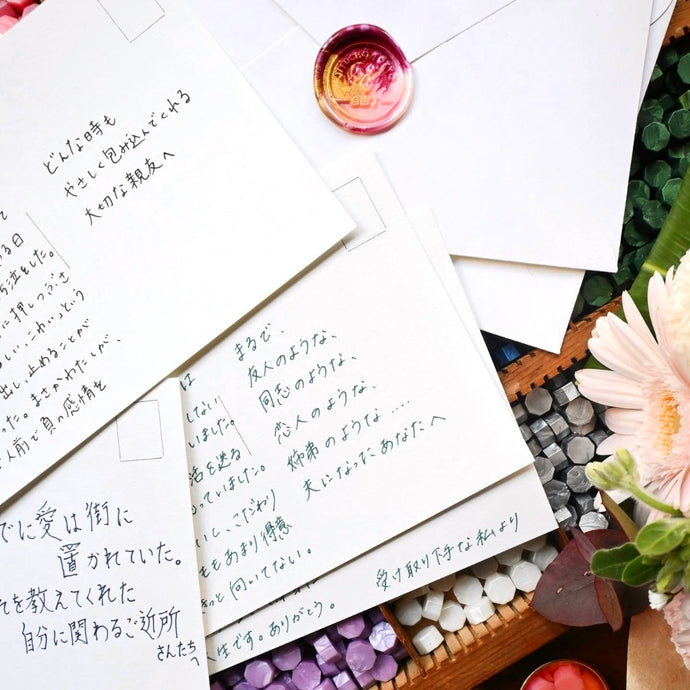 どんな時も
やさしく包み込んでくれる
大切な親友へ
て
る日
ち泣をした。
に押しつぶさ
しい、こわいという
出し、止めることが
った。まさかわたしが、
人前で負の感情を
まるで、
友人のような、
同志のような、
恋人のような、
姉弟のような....
夫になった、あなたへ
は
しない
いました。
活を送る
っていました。
いし、こだわり
もあまり得意
っと向いてない。
受け取り下手な私より
人生です。ありがとう。
でに愛は街に
置かれていた。
れを教えてくれた
自分に関わるご近所
さんたちへ